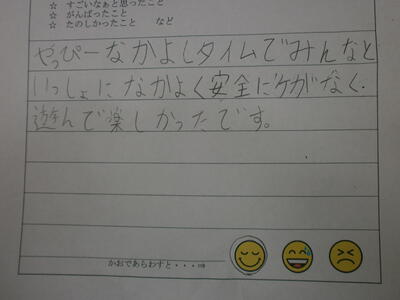 ☆ すごいなぁと思ったこと
☆ がんばったこと
☆ たのしかったこと など
やっぴーなかよしタイムでみんなと
いっしょになかよく安全にケガがなく
遊んで楽しかったです。
かおであらわすと・・・⇒